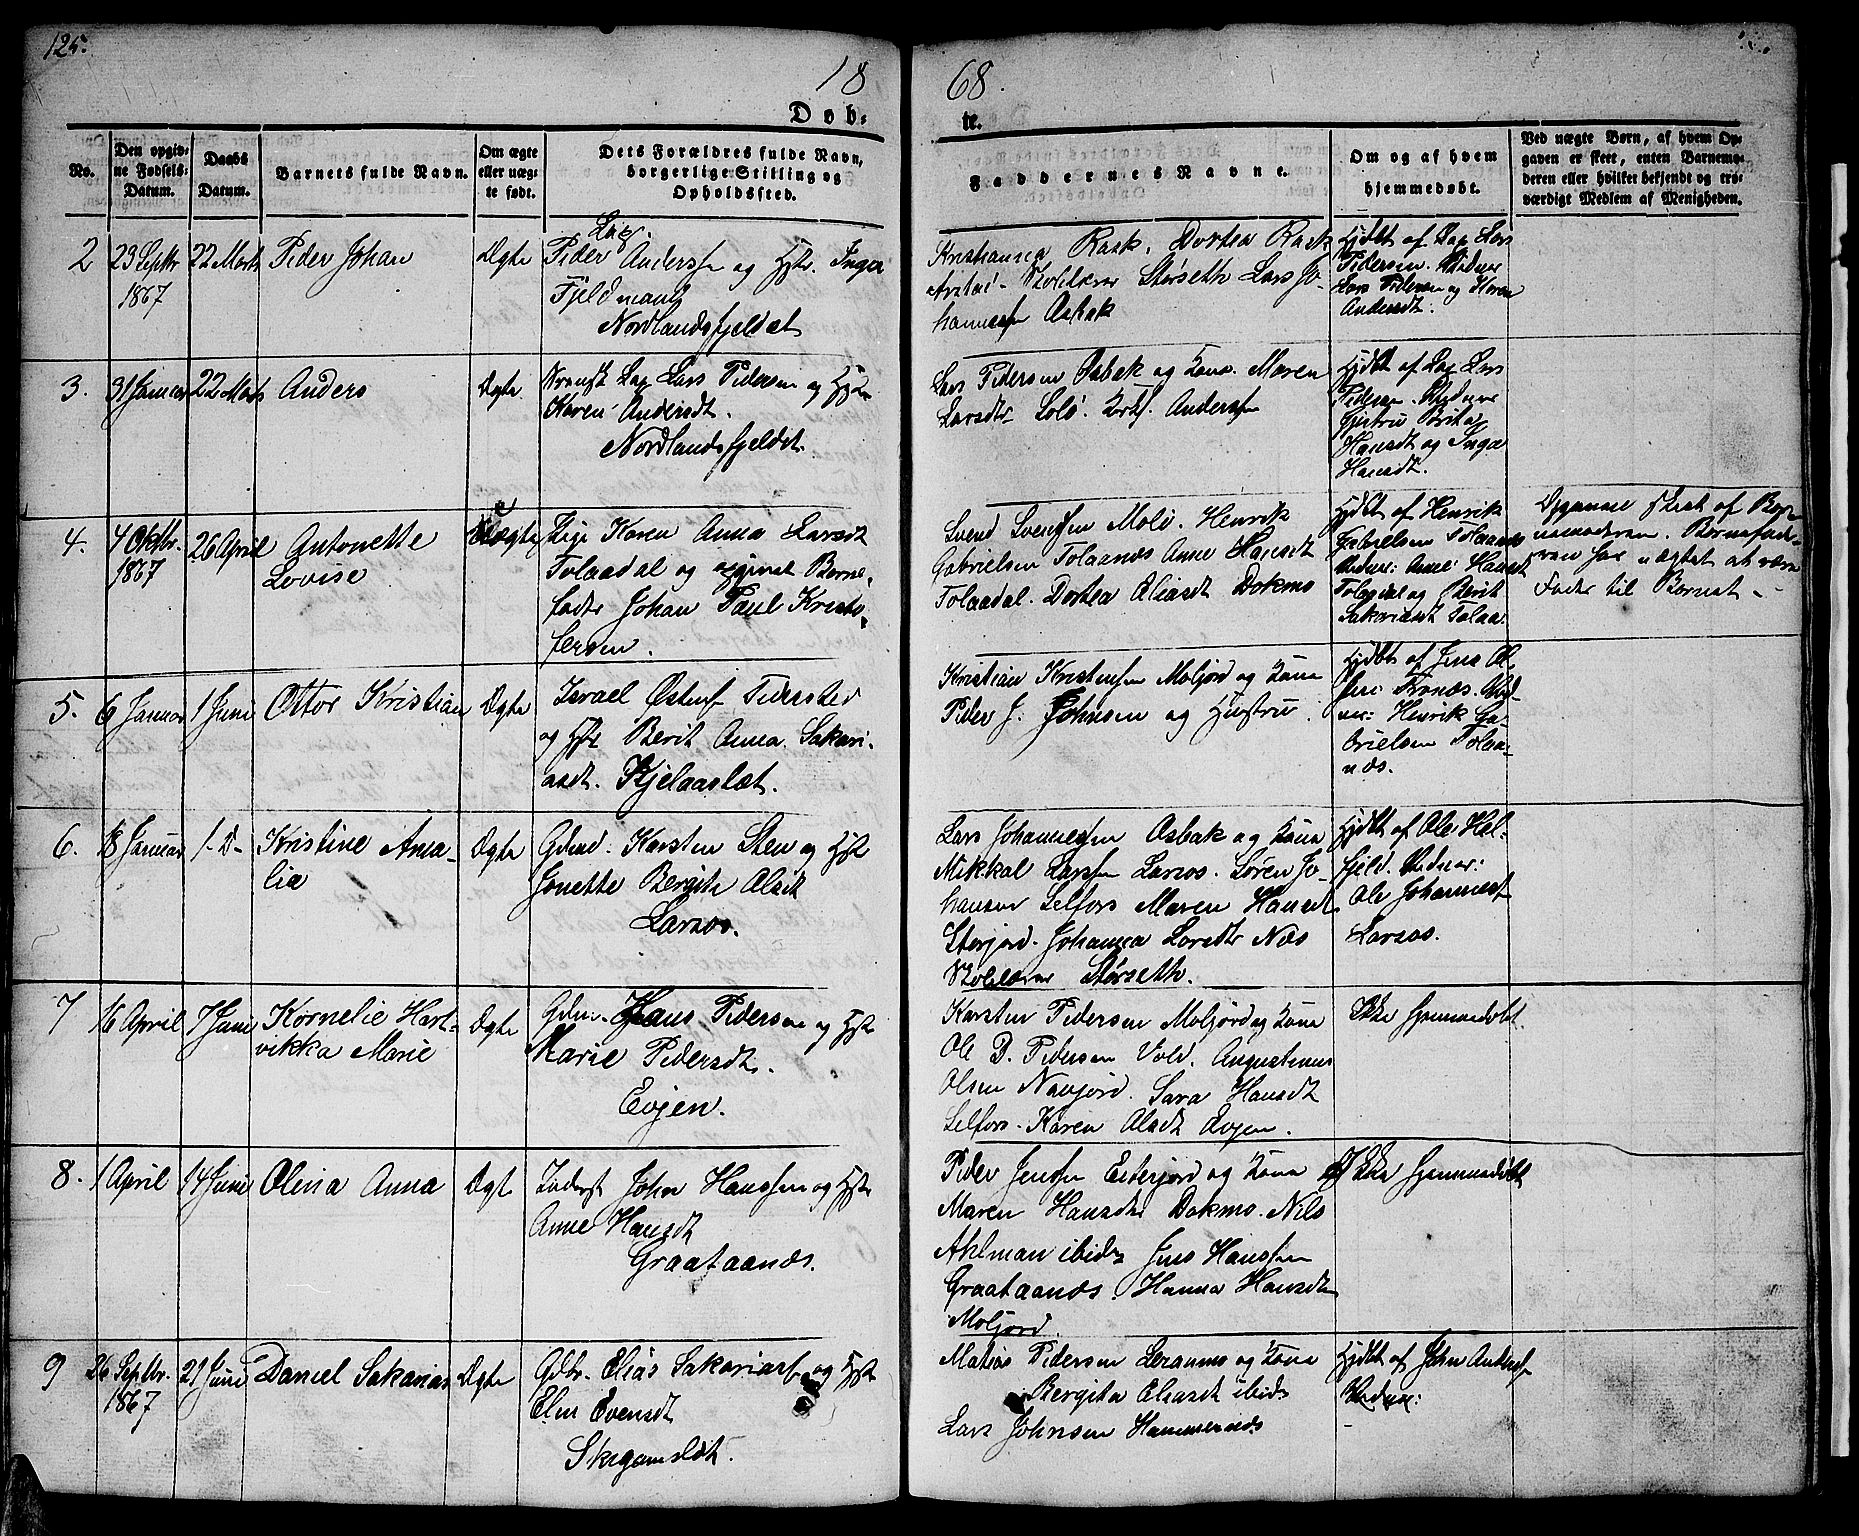 125.
18
68.
Døb-
te.
No.
Den opgiv-
ne Fødsels-
Datum.
Daabs
Datum.
Barnets fulde Navn.
Om ægte
eller uæg-
te født.
Dets Forældres fulde Navn,
borgerlige Stilling og
Opholdssted.
Faddernes Navne.
Om og af hvem
hjemmedøbt.
Ved uægte Børn, af hvem Op-
gaven er skeet, enten Barnemo-
deren eller hvilket bekjendt og tro-
værdigt Medlem af Menigheden.
2
23 Septbr
1867
22 Marts
Peder Johan
Ægte
Lap.
Peder Anderssen og Hstr. Inga
Fjeldmand
Nordlandsfjeldet
Kristianna Rask. Dortea Rask
Storseth Lars Jo-
hannessen Asbak
Hjdbt af Lap Lars
Pedersen. Vidner
Lars Pedersen og Karen
Andersdt.
3.
31 Januar
22 Marts
Anders
Ægte
Lap Lars Pedersen og Hstr
Karen Andersdt.
Nordlandsfjeldet.
Lars Pedersen Asbak og Kone. Maren
Larsdtr Andersen
Hjdbt af Lap Lars
Pedersen. Vidner
Berit
Hansdt og Inga
Hansdt.
4.
4 Oktbr.
1867
26 April
Antonette
Lovise
Uægte
Pige Karen Anna Larsdt
Tolaadal og opgivet Barne-
fader Johan Paul Kristo-
fersen.
Svend Svendsen Molid. Henrik
Gabrielsen Tolaanæs Anne Hansdt
Tolaadal. Dortea Eliasdt Dokmo
Hjdbt af Henrik
Gabrielsen Tolaanæs
Vidner: Anne Hansdt
Tolaadal og Berit
Sakariasdt Tolaa-
Opgivne skeet af Bar-
nemoderen. Barnefade-
ren har nægtet at være
Fader til Barnet.
5.
6 Januar
1 Juni
Ottor Kristian
Ægte
Israel Østens Pedersted
og Hstr Berit Anna Sakari-
asdt. Kjelaaslæt.
Kristian Kristensen Moljord og Kone
Peder J. Johnsen og Hustru.
Hjdbt af Jens Ol-
sen Trones. Vid-
ner: Henrik Ga-
brielsen Tolaa-
næs.
6.
18 Januar
1-D-
Kristine Ama-
lia
Ægte
Gdmd. Karsten Sten og Hstr
Jonette Bergite Olsdt
Larsos.
Lars Johannessen Asbak og Kone
Mikkal Larssen Larsos. Søren Jo-
hansen Selfors Maren Hansdt
Storjord. Johanna Larsdtr Næs
Storseth.
Hjdbt af Ole Hel-
fjeld. Vidner:
Ole Johannesst
Larsos.
7
16 April
7 Juni
Kornelie Hart-
vikka Marie
Ægte
Gdm. Hans Pedersen og Hstr
Marie Pedersdt.
Evjen.
Karsten Pedersen Moljord og Kone
Ole D. Pedersen Vold. Augustinus
Olsen Navjord. Sara Hansdt
Selfors. Karen Olsdt Evjen.
Ikke hjemmedøbt.
8.
1 April
14 Juni
Olina Anna
Ægt
Inderst John Hanssen og Hstr
Anne Hansdt
Graataanæs.
Peder Jenssen Eiterjord og Kone
Maren Hansdtr Dokmo. Nils
Ahlman ibid. Jens Hanssen
Graataanæs. Hanna Hansdtr
Moljord.
Ikke hjemmedøbt
9
26 Septbr.
1867
21 Juni
Daniel Sakarias
Ægte
Gdbr. Elias Sakariass. og Hstr
Elen Evensdt
Skjamslæt.
Matias Pedersen Leraanmo og Kone
Bergita Eliasdt ibid.
Lars Johnsen Hammernæs
Hjdbt af John Anderss
Vidner: